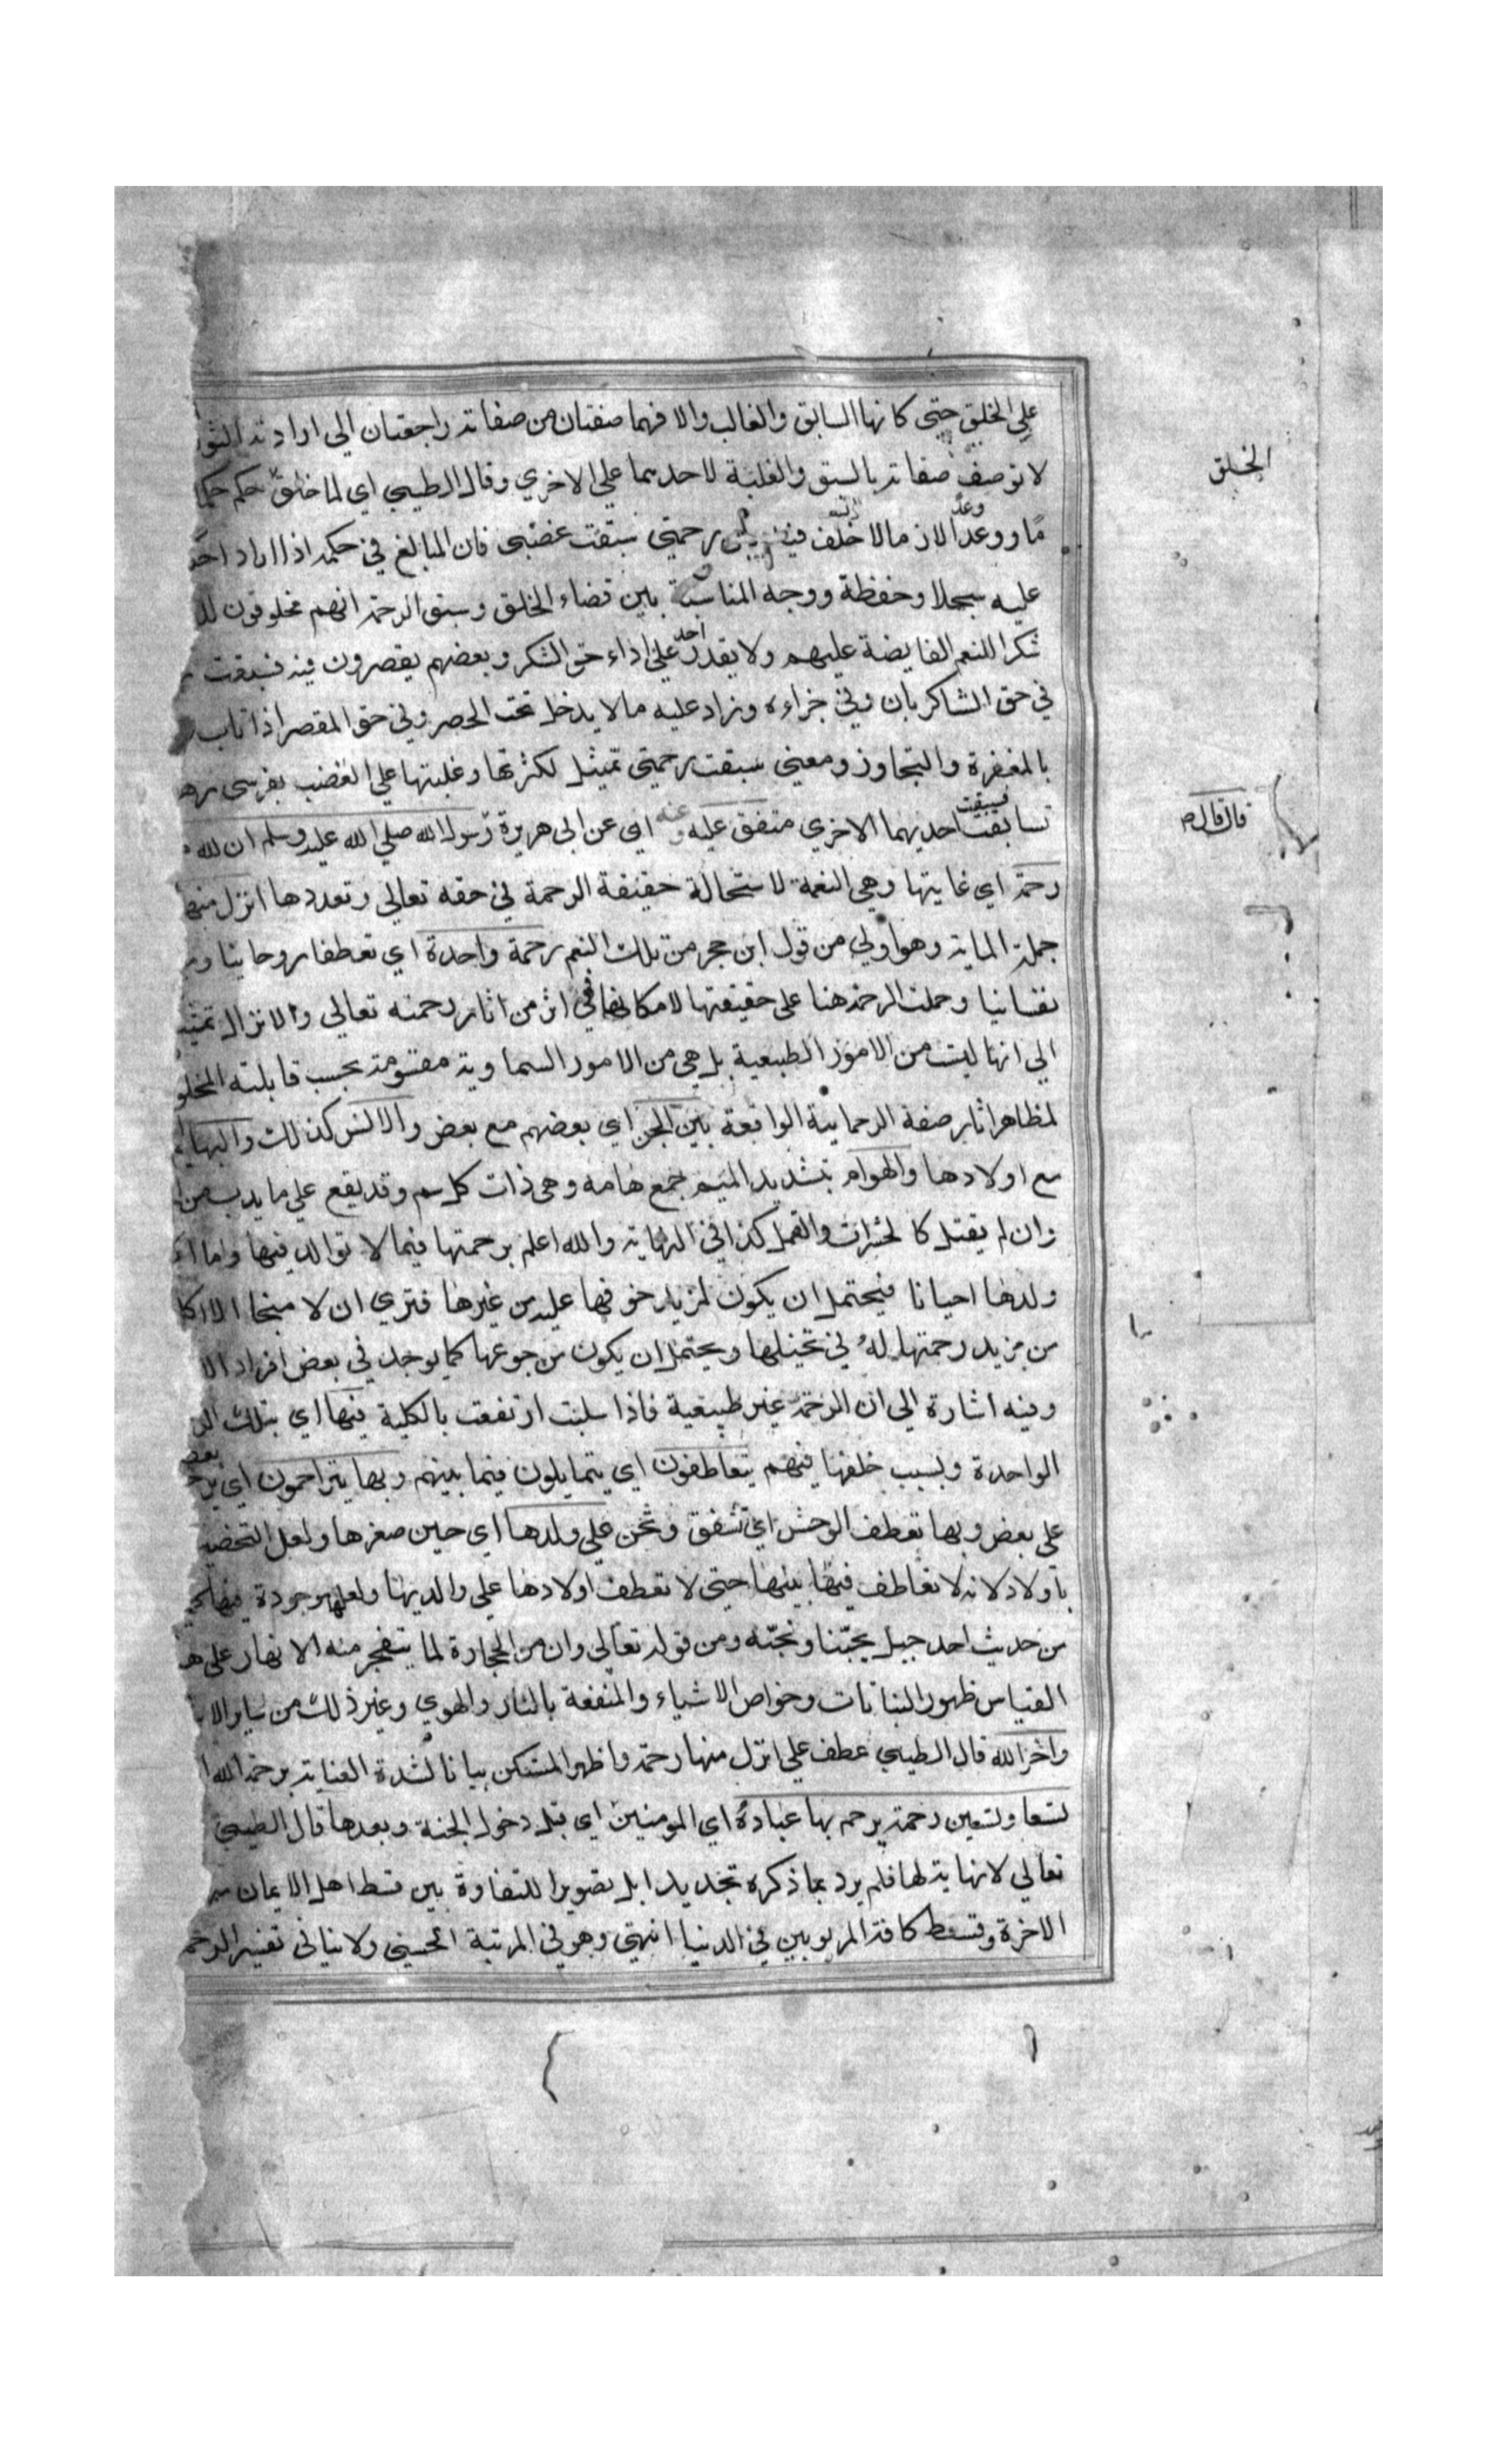 علي الخلق حتي كانها السابق والغالب والا فهما صفتان من صفاته راجعتان الي ارادته الثو
لا توصف صفاته بالسبق والغلبة لاحديهما علي الاخري وقال الطيبي اي لما خلق حكم حكما
الخلق
ووعد وعدا لازما لا خلف فيه رحمتي سبقت غضبي فان المبالغ في حكمه اذا اراد
عليه سجلا وحفظة ووجه المناسبة بين قضاء الخلق وسبق الرحمة انهم مخلوقون
شكرا للنعم الفايضة عليهم ولا يقدر احد علي اداء حق الشكر وبعضهم يقصرون فيه فسبقت
في حق الشاكر بان وفي جزاءه وزاد عليه مالا يدخل تحت الحصر وفي حق المقصر اذا تاب
بالمغفرة والتجاوز ومعني سبقت رحمتي تمثيل لكثرتها وغلبتها علي الغضب بفرسي
تسابقتا فسبقت احديهما الاخري متفق عليه وعنه اي عن ابي هريرة رسول الله صلي الله عليه وسلم ان لله
قال قال
رحمة اي غايتها وهي النعمة لاستحالة حقيقة الرحمة في حقه تعالي وتعددها انزل منها
جملة الماية وهو اولي من قول ابن حجر من تلك النعم رحمة واحدة اي تعطفا روحانيا
نفسانيا وحملت الرحمة هنا علي حقيقتها لامكانها في اثر من اثار رحمته تعالي والانزال
الي انها ليست من الامور الطبيعية بل هي من الامور السماوية مقسومة بحسب قابلته
لمظاهر اثار صفة الرحمانية الواقعة بين الجن اي بعضهم مع بعض والانس كذلك والبهايم
مع اولادها والهوام بتشديد الميم جمع هامة وهي ذات كل سم وقد يقع علي ما يدب من
وان لم يقتل كالحشرات والقمل كذا في النهاية والله اعلم برحمتها فيما لا توالد فيها واما
ولدها احيانا فيحتمل ان يكون لمزيد خوفها عليه من غيرها فتري ان لا منجا الا
من مزيد رحمتها له في تخيلها ويحتمل ان يكون من جوعها كما يوجد في بعض افراد
وفيه اشارة الي ان الرحمة غير طبيعية فاذا سلبت ارتفعت بالكلية فبها اي بتلك
الواحدة وبسبب خلقها فيهم يتعاطفون اي يتمايلون فيما بينهم وبها يتراحمون اي
علي بعض وبها تعطف الوحش اي تشفق وتحن علي ولدها اي حين صغرها ولعل
باولاد لانه لا تعاطف فيها بينها حتي لا تعطف اولادها علي والديها ولعلها موجودة
من حديث احد جبل يحبنا ونحبه ومن قوله تعالي وان من الحجارة لما يتفجر منه الانهار علي
القياس ظهور النباتات وخواص الاشياء والمنفعة بالنار والهوي وغير ذلك من ساير
واخر الله قال الطيبي عطف علي انزل منها رحمة واظهر المستكن بيانا لشدة العناية برحمة الله
تسعا وتسعين رحمة يرحم بها عباده اي المومنين اي قبل دخول الجنة وبعدها قال الطيبي
تعالي لا نهاية لها فلم يرد بما ذكره تحديدا بل تصويرا للتفاوة بين قسط اهل الايمان
الاخرة وقسط كافة المربوبين في الدنيا انتهي وهو في المرتبة الحسني ولا ينافي تفسير